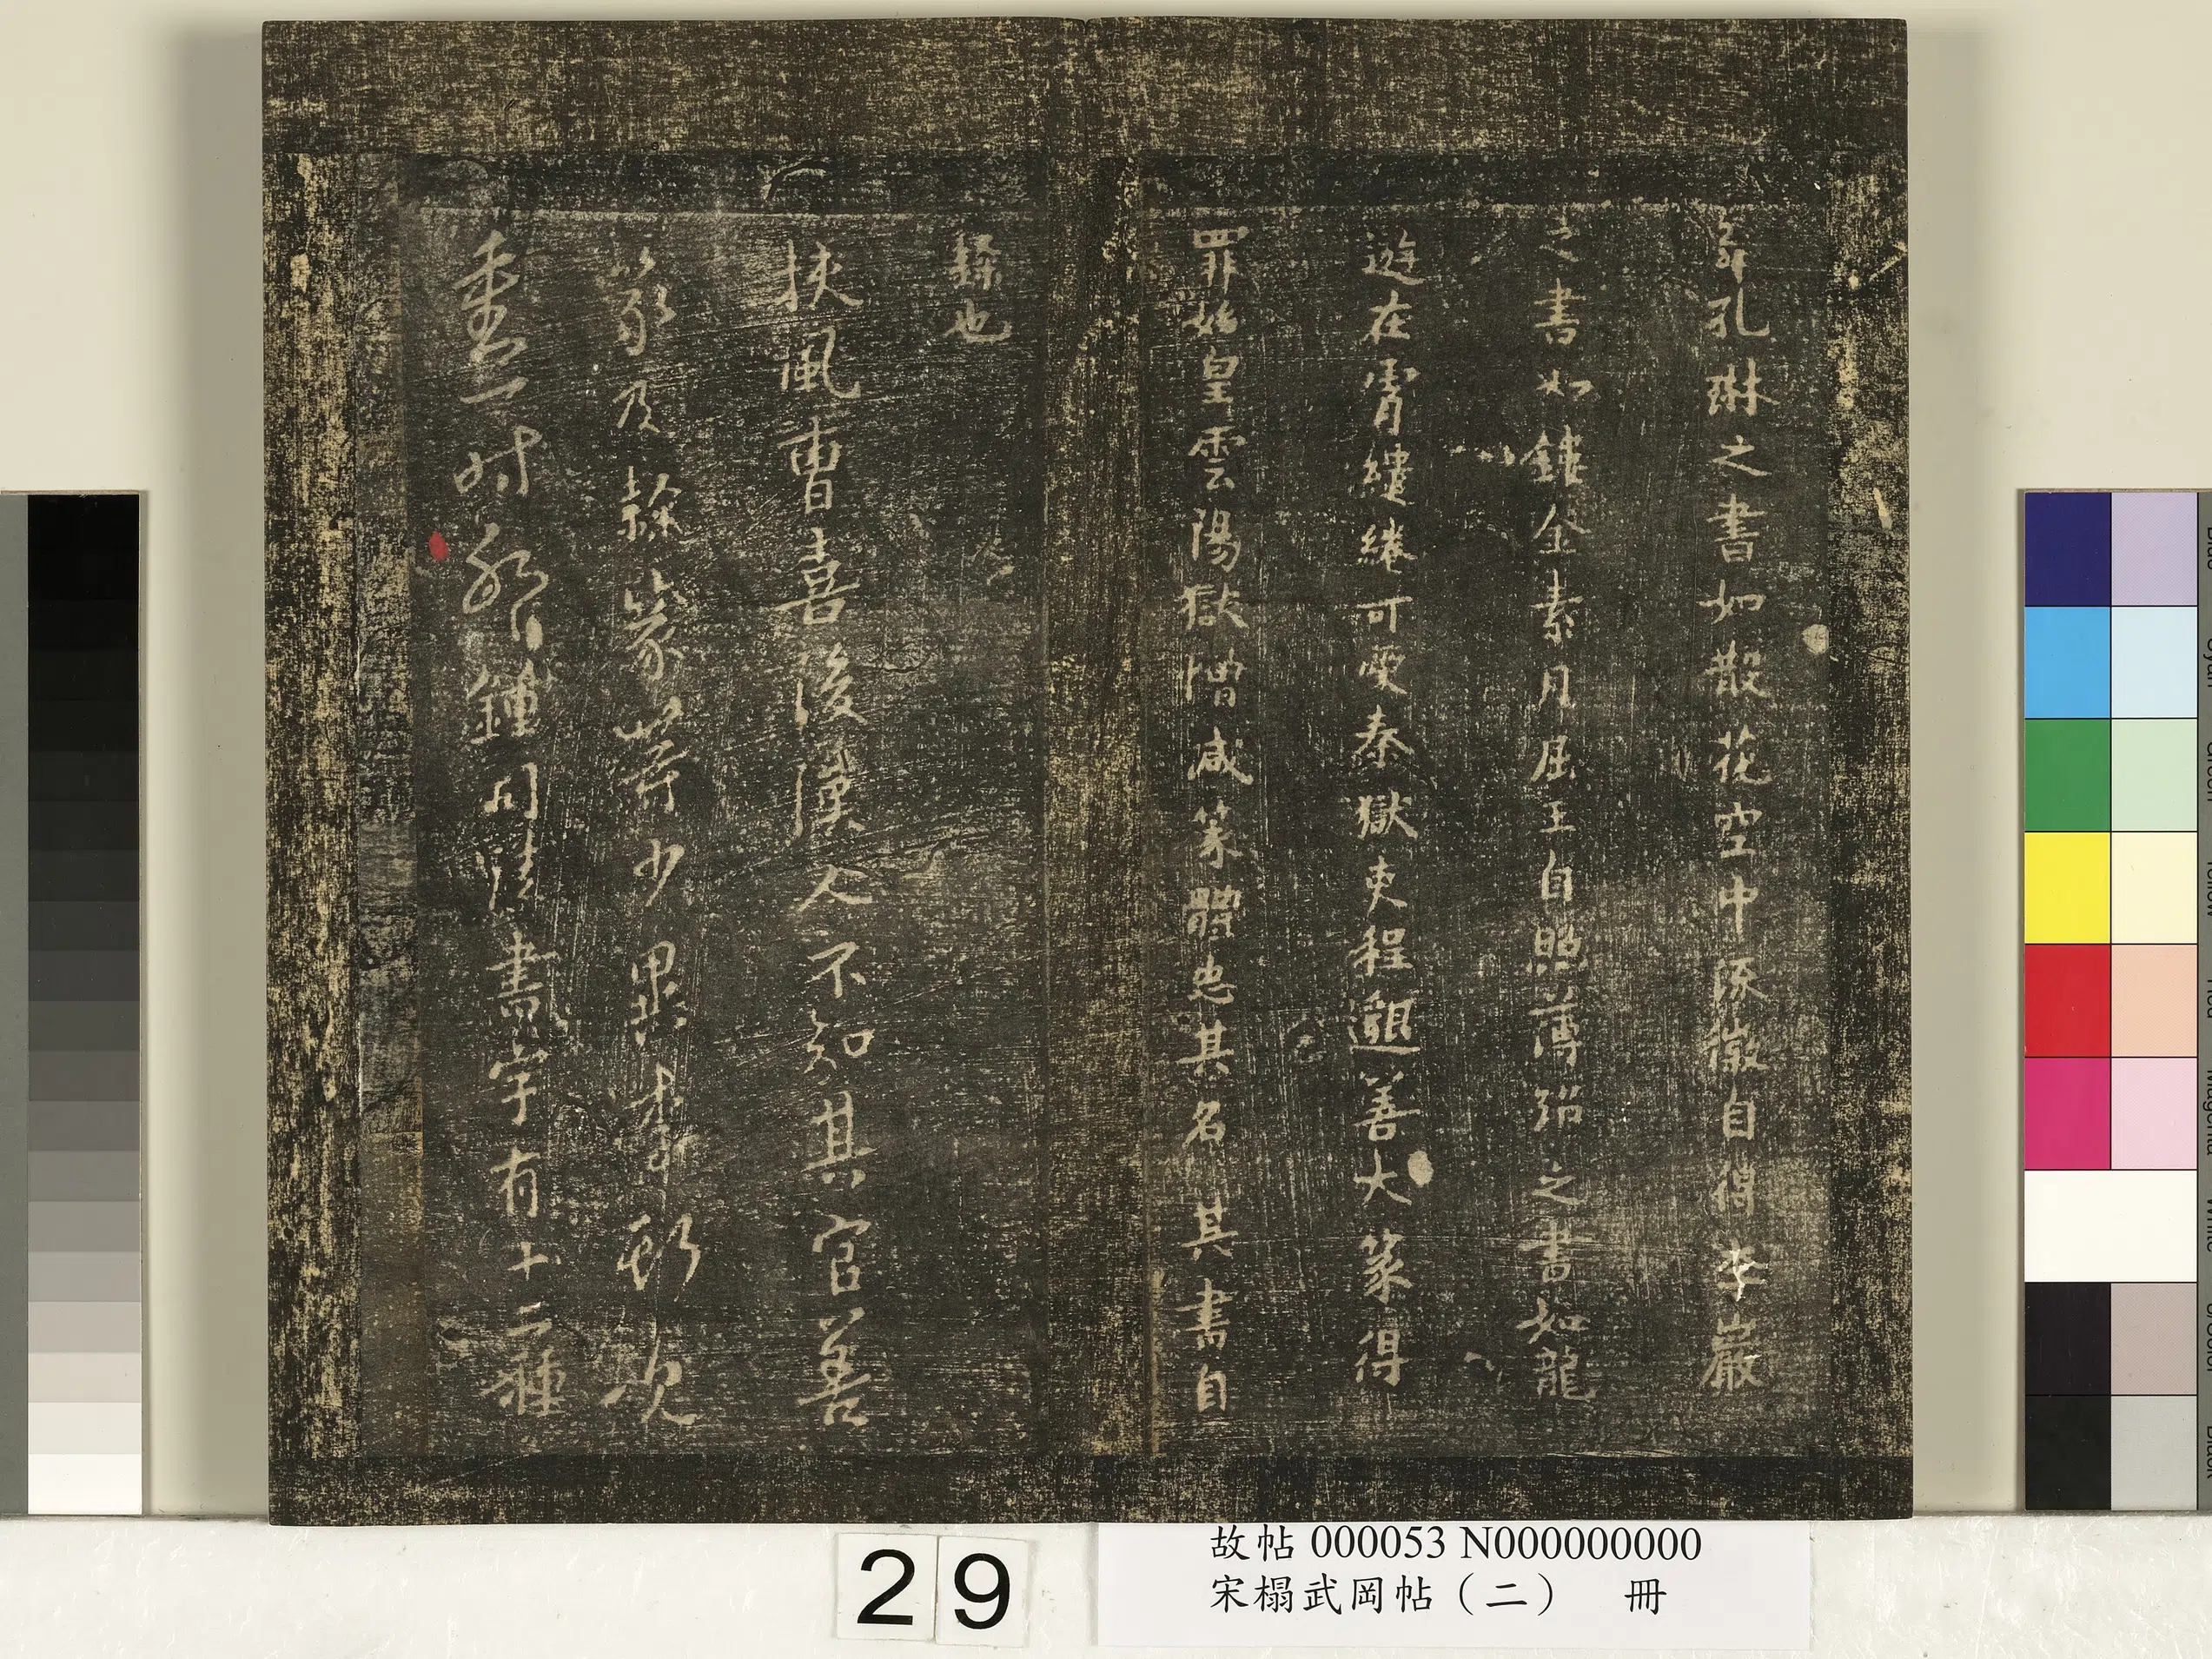 舞孔琳之書如散花空中流徽自得李巖
之書如鏤金素月屈玉自照薄紹之書如龍
遊在霄繾綣可愛秦獄吏程邈善大篆得
罪始皇雲陽獄增減篆體去其名其書自
隸也
扶風曹喜後漢人不知其官善
篆及隸篆等少異李斯次
一時
鍾 書字有十二種
29
故帖 000053 N000000000
宋榻武岡帖（二） 冊